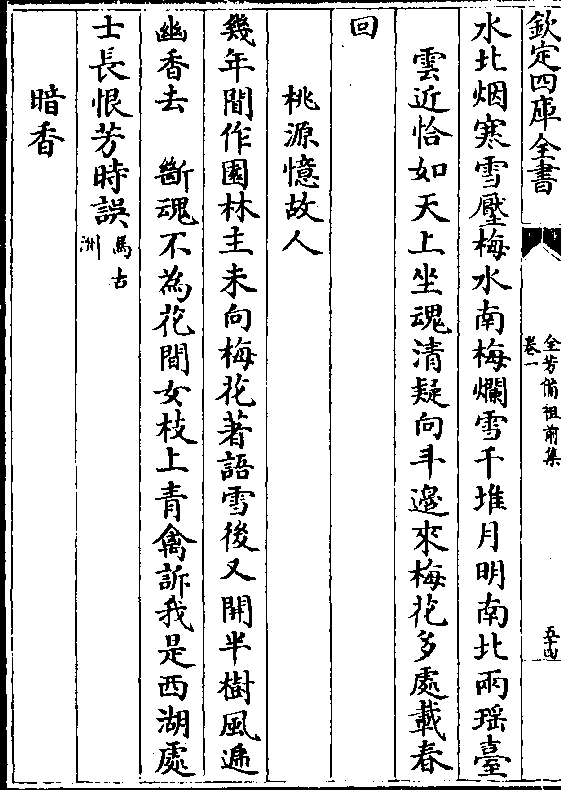 欽定四庫全書
全芳備祖前集
卷一
五十四
水北烟寒雪壓梅水南梅爛雪千堆月明南北兩瑶臺
雲近恰如天上坐魂清疑向斗邉來梅花多處載春
回
桃源憶故人
幾年間作園林主未向梅花著語雪後又開半樹風遞
幽香去 斷魂不為花間女枝上青禽訴我是西湖處
士長恨芳時誤馬古洲
暗香